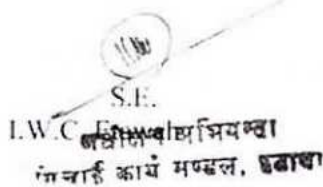 S.E.
I.W.C. Etawah
अधीक्षण अभियन्ता
सिंचाई कार्य मण्डल, इटावा